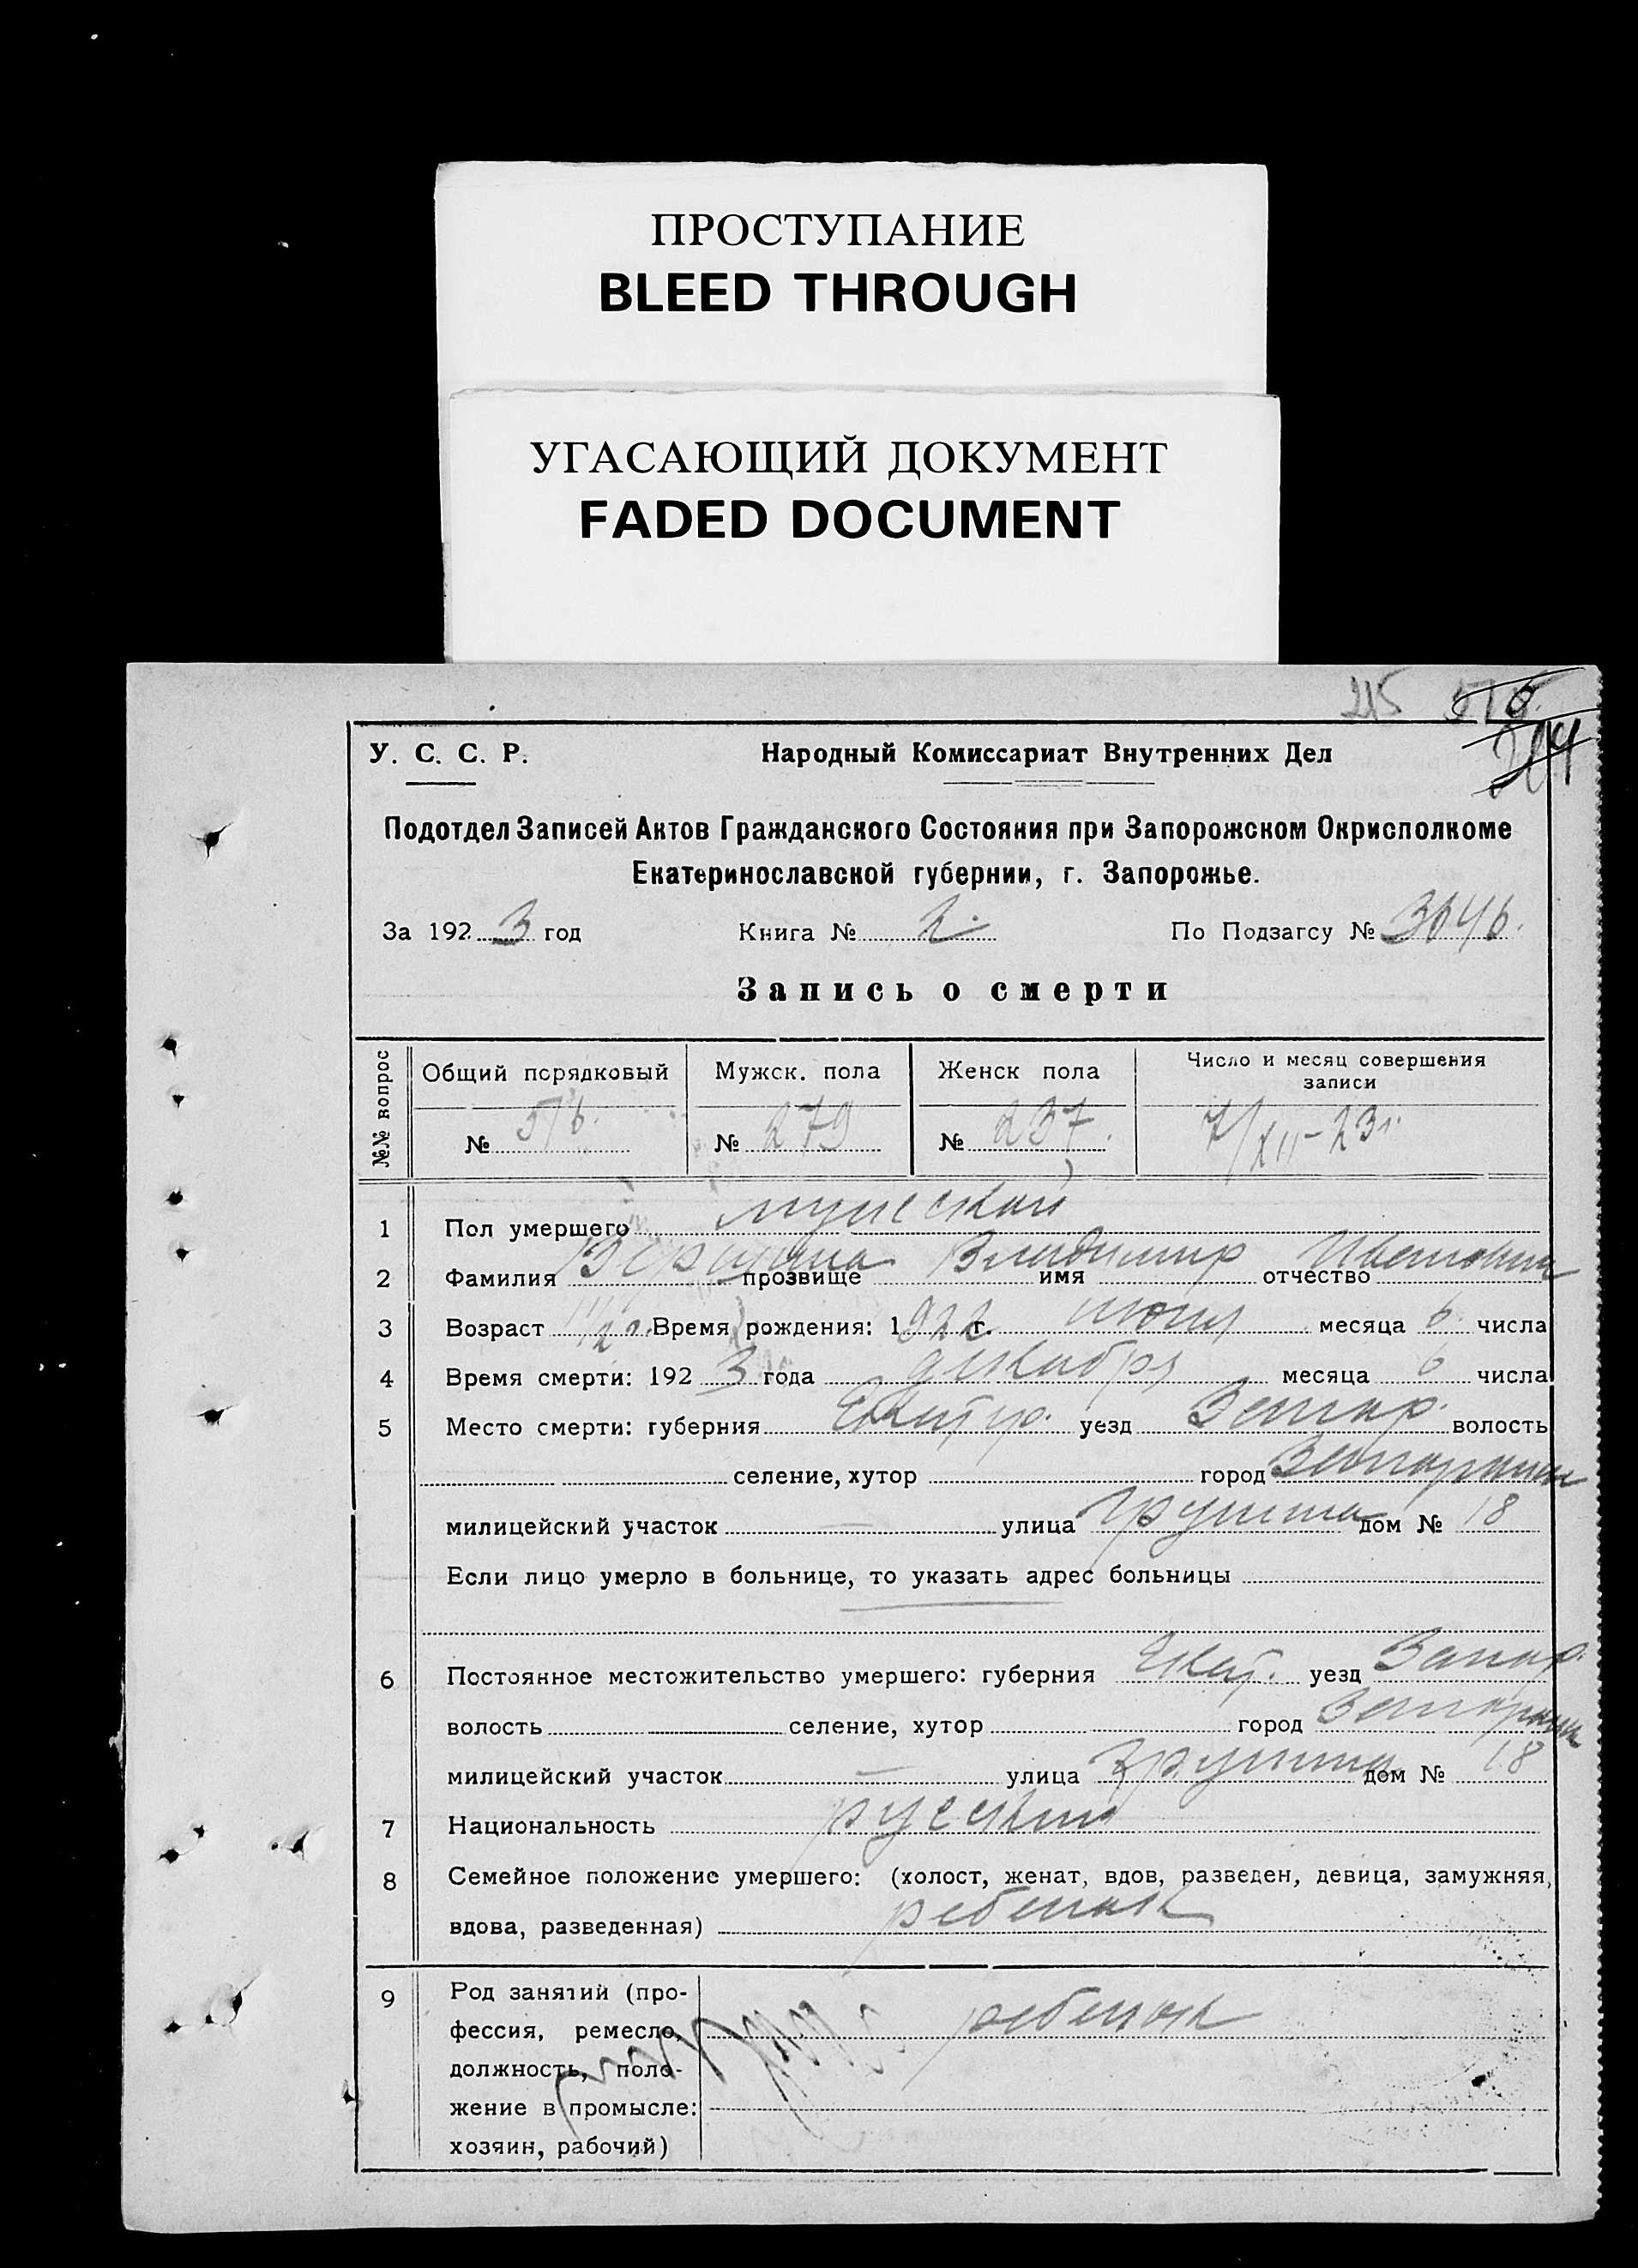 ПРОСТУПАНИЕ
BLEED THROUGH
УГАСАЮЩИЙ ДОКУМЕНТ
FADED DOCUMENT
215 516.
У. С. С. Р. Народный Комиссариат Внутренних Дел
Подотдел Записей Актов Гражданского Состояния при Запорожском Окрисполкоме
Екатеринославской губернии, г. Запорожье.
За 192 3 год Книга № 2. По Подзагсу № 3646.
Запись о смерти
№№ вопрос Общий порядковый Мужск. пола Женск пола Число и месяц совершения
записи
№ 516. № 279 № 237. 7/XII-23г.
1 Пол умершего мужеской
2 Фамилия прозвище Владимир имя отчество Иванович
3 Возраст 1 1/2 г. Время рождения: 1922 г. июня месяца 6 числа
4 Время смерти: 192 3 года декабря месяца 6 числа
5 Место смерти: губерния уезд Запор. волость
селение, хутор город Запорожье
милицейский участок — улица дом № 18
Если лицо умерло в больнице, то указать адрес больницы
6 Постоянное местожительство умершего: губерния Екат. уезд Запор.
волость селение, хутор город Запорожье
милицейский участок — улица дом № 18
7 Национальность русский
8 Семейное положение умершего: (холост, женат, вдов, разведен, девица, замужняя,
вдова, разведенная) ребенок
9 Род занятий (про-
фессия, ремесло, ребенок
должность, поло-
жение в промысле:
хозяин, рабочий)